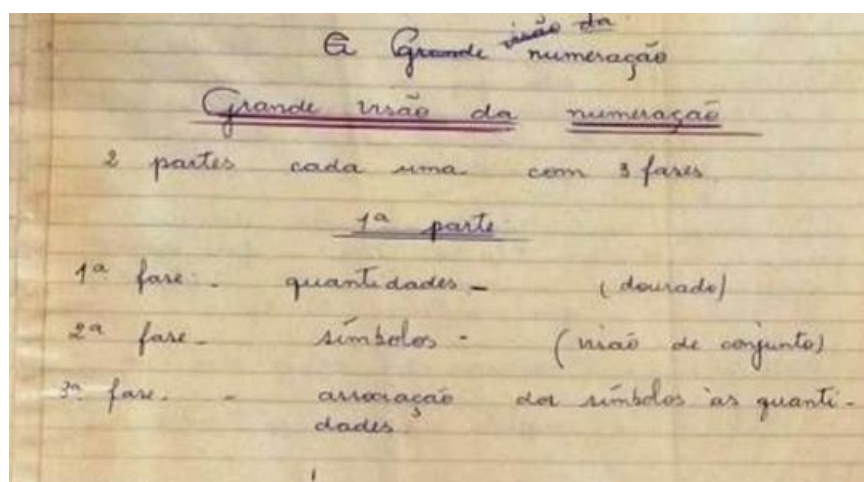 A Grande visão da numeração
Grande visão da numeração
2 partes cada uma com 3 fases
1ª parte
1ª fase - quantidades - (dourado)
2ª fase - símbolos - (visão de conjunto)
3ª fase. - associação dos símbolos às quanti-
dades.